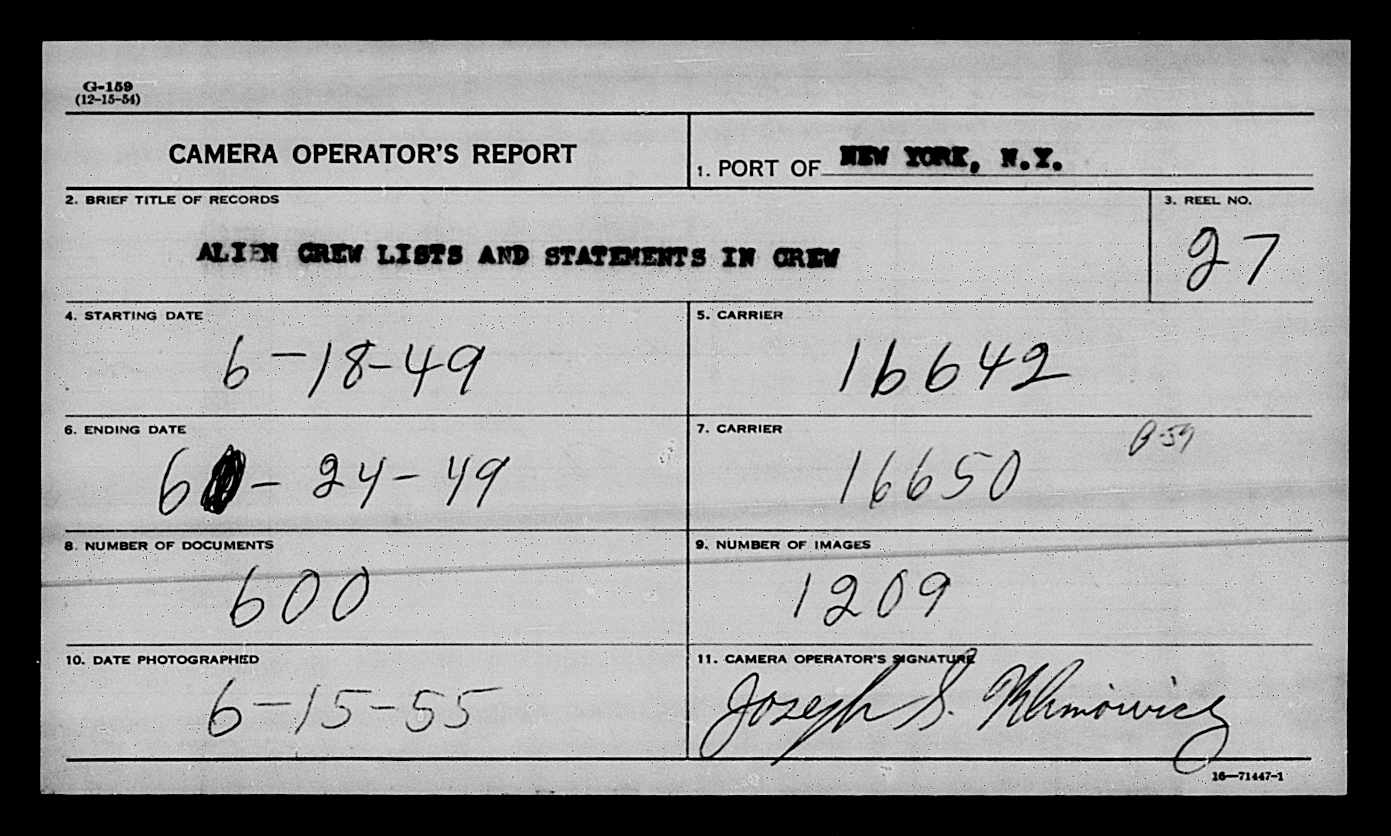 G-159
(12-15-54)
CAMERA OPERATOR'S REPORT
1. PORT OF NEW YORK, N.Y.
2. BRIEF TITLE OF RECORDS
ALIEN CREW LISTS AND STATEMENTS IN CREW
3. REEL NO.
27
4. STARTING DATE
6-18-49
5. CARRIER
16642
6. ENDING DATE
6 - 24-49
7. CARRIER
16650
8. NUMBER OF DOCUMENTS
600
9. NUMBER OF IMAGES
1209
10. DATE PHOTOGRAPHED
6-15-55
11. CAMERA OPERATOR'S SIGNATURE
Joseph S. Klimowicz
16—71447-1